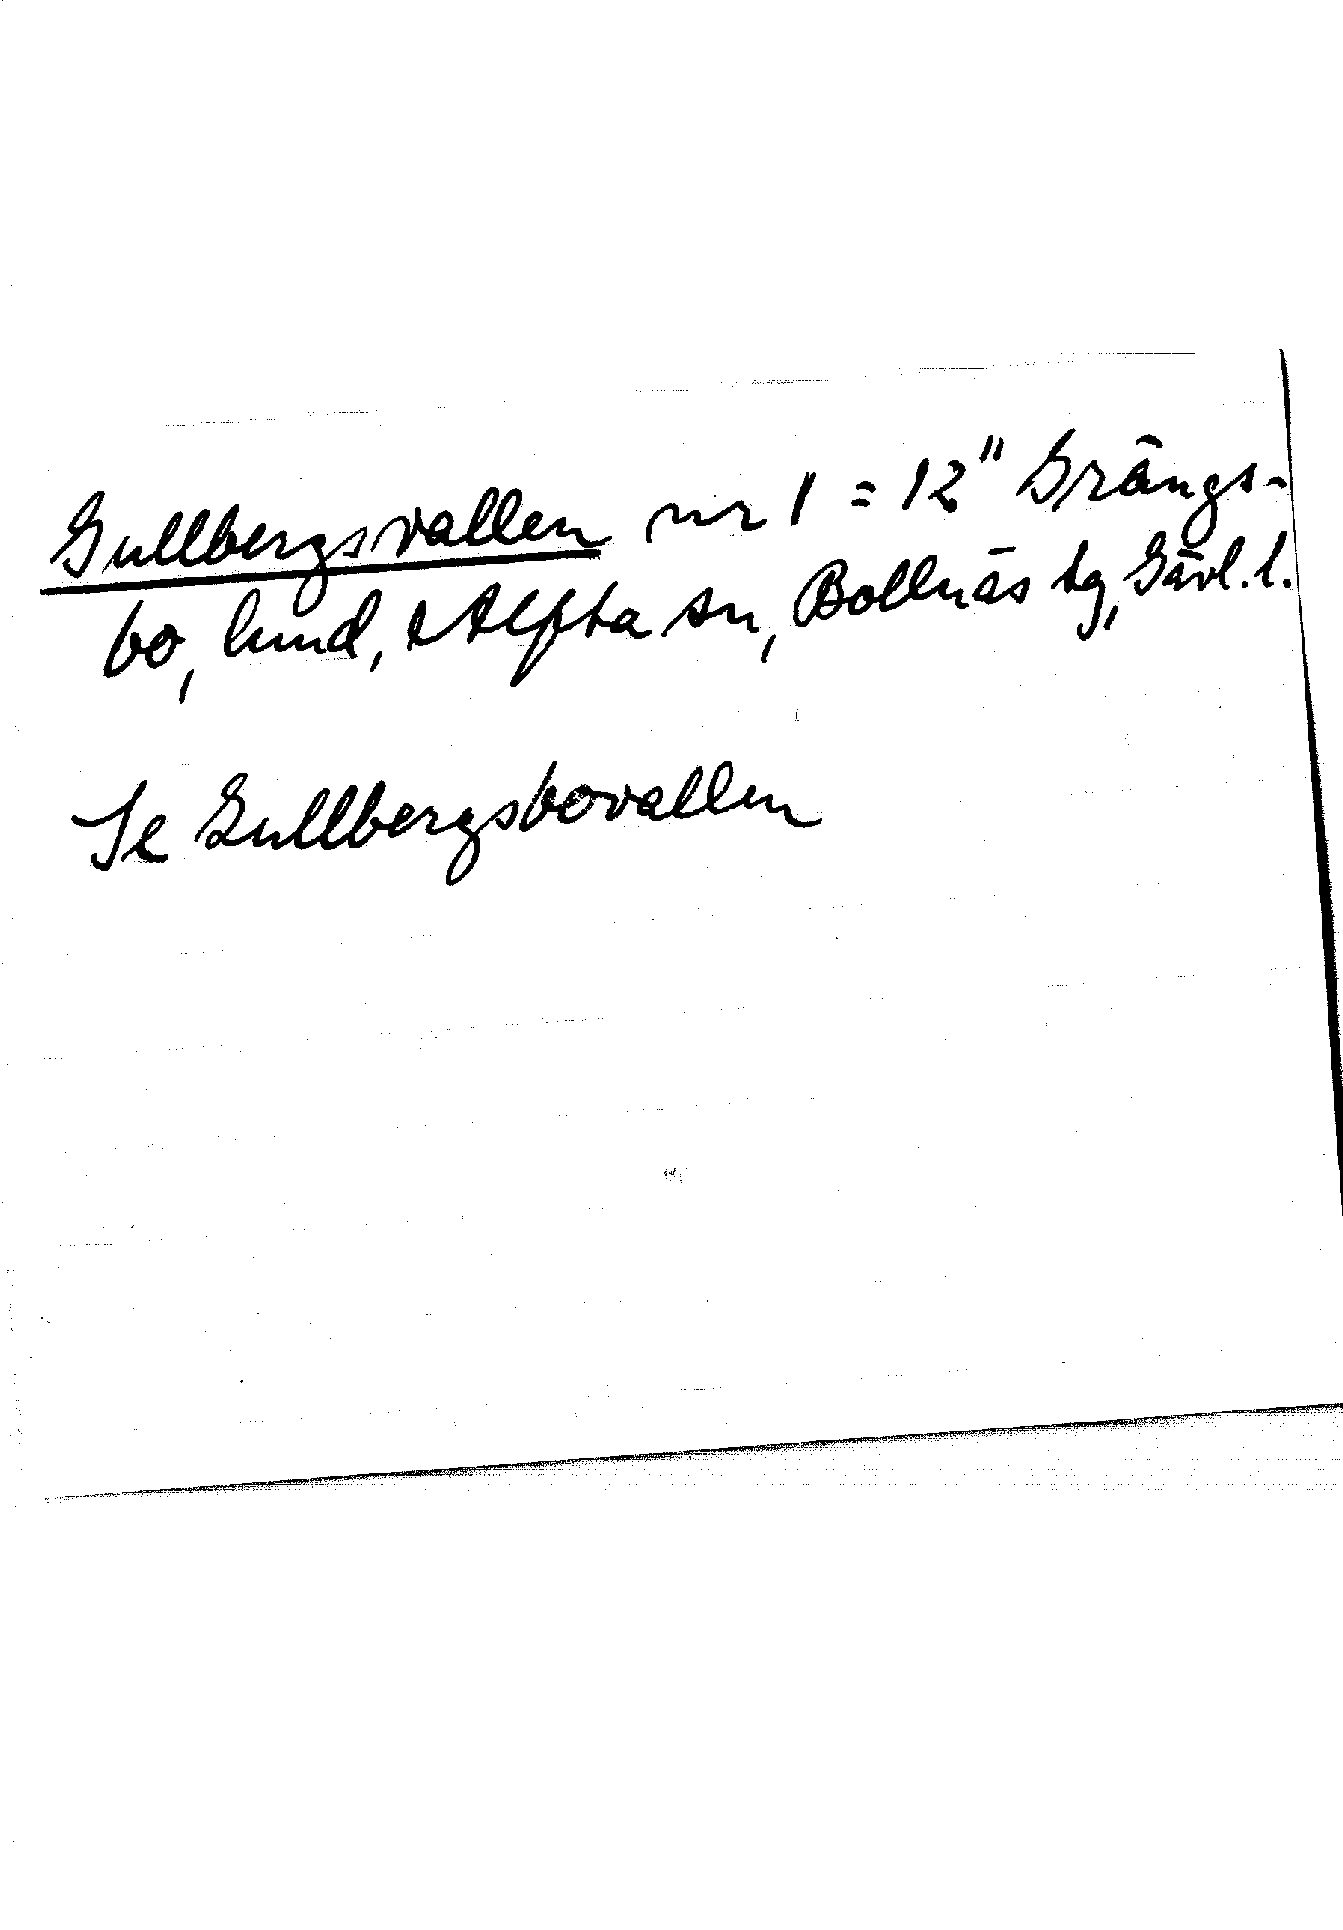 Gullbergsvallen nr 1 = 12" Grängs-
bo, lund, Alfta sn, Bollnäs tg, Gävl. l.
Se Gullbergsbovallen